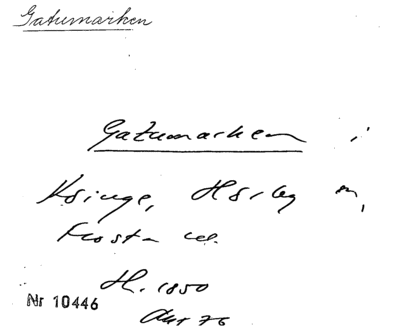 Gatumarken
Gatumarken i
Ksinge, Hörby m,
Frosta
H. 1850
Nr 10446
76